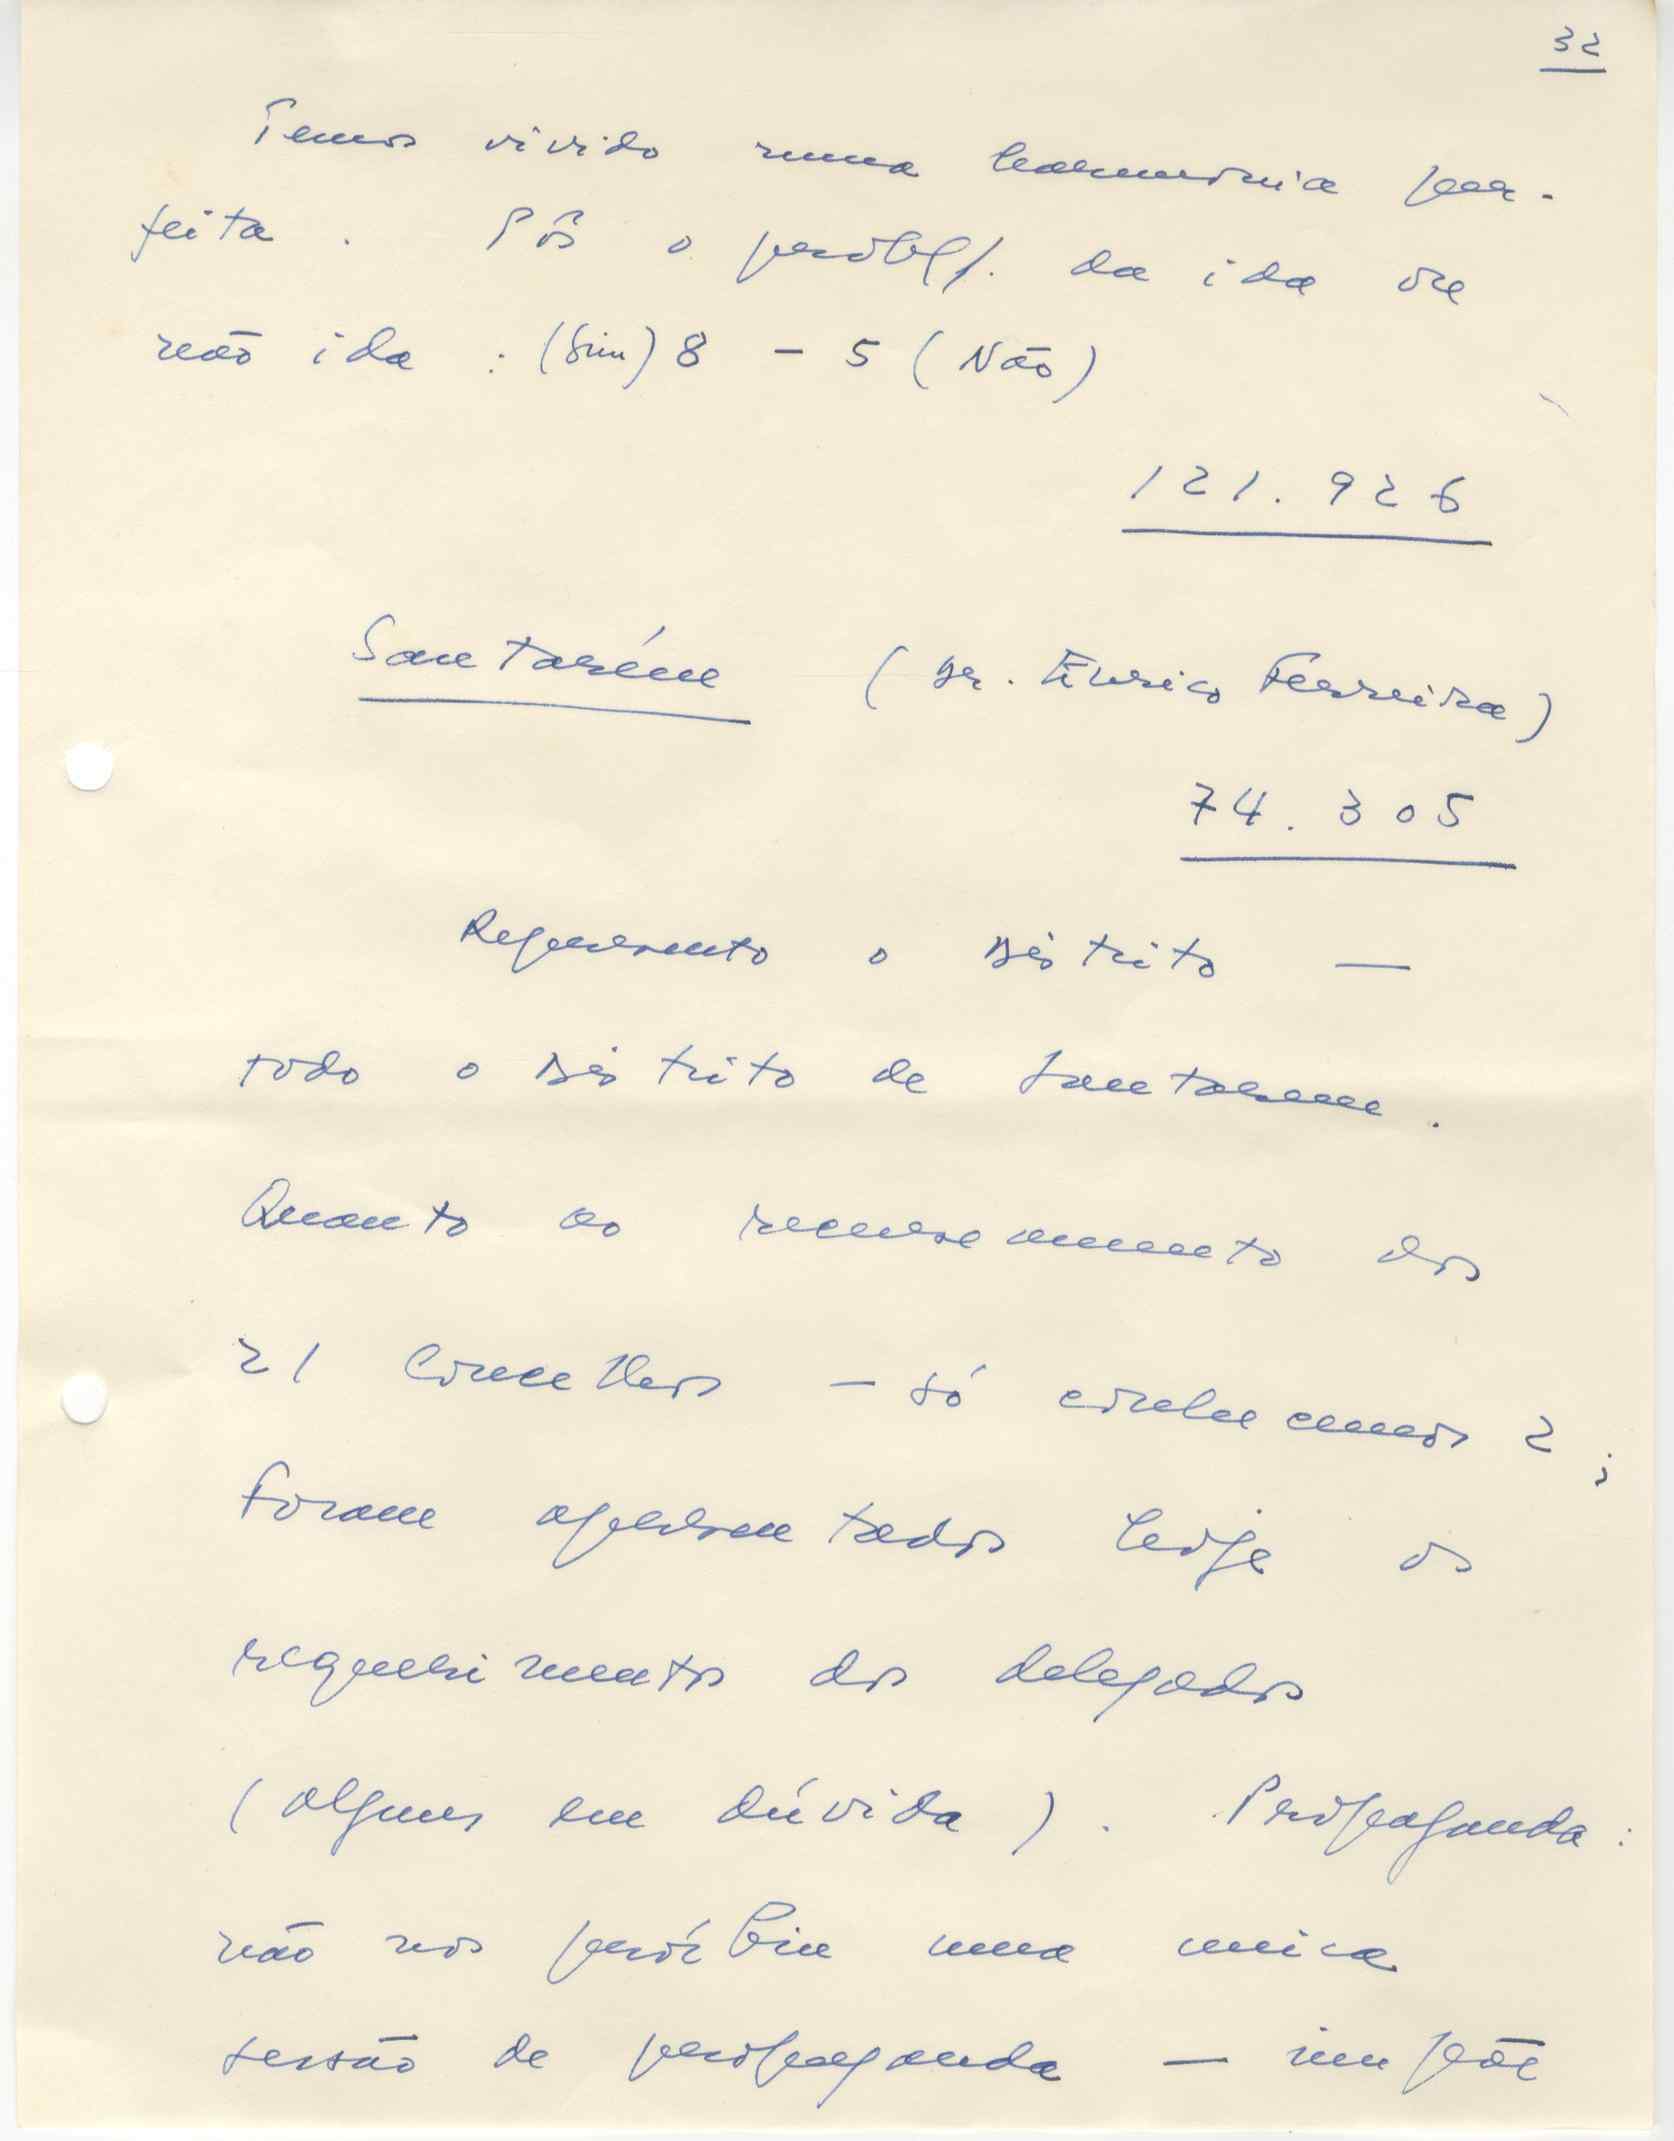 32
Temos vivido numa harmonia per-
feita. Pôs o probl/. da ida ou
não ida : (Sim) 8 - 5 (Não)
121.926
Santarém (Dr. Eurico Ferreira)
74.305
Represento o Distrito —
todo o Distrito de Santarem.
Quanto ao recenseamento dos
21 Concelhos — só conhecemos 2 ;
foram apresentados hoje os
requerimentos dos delegados
(alguns em dúvida). Propaganda :
não nos proíbiu uma unica
sessão de propaganda — impõe